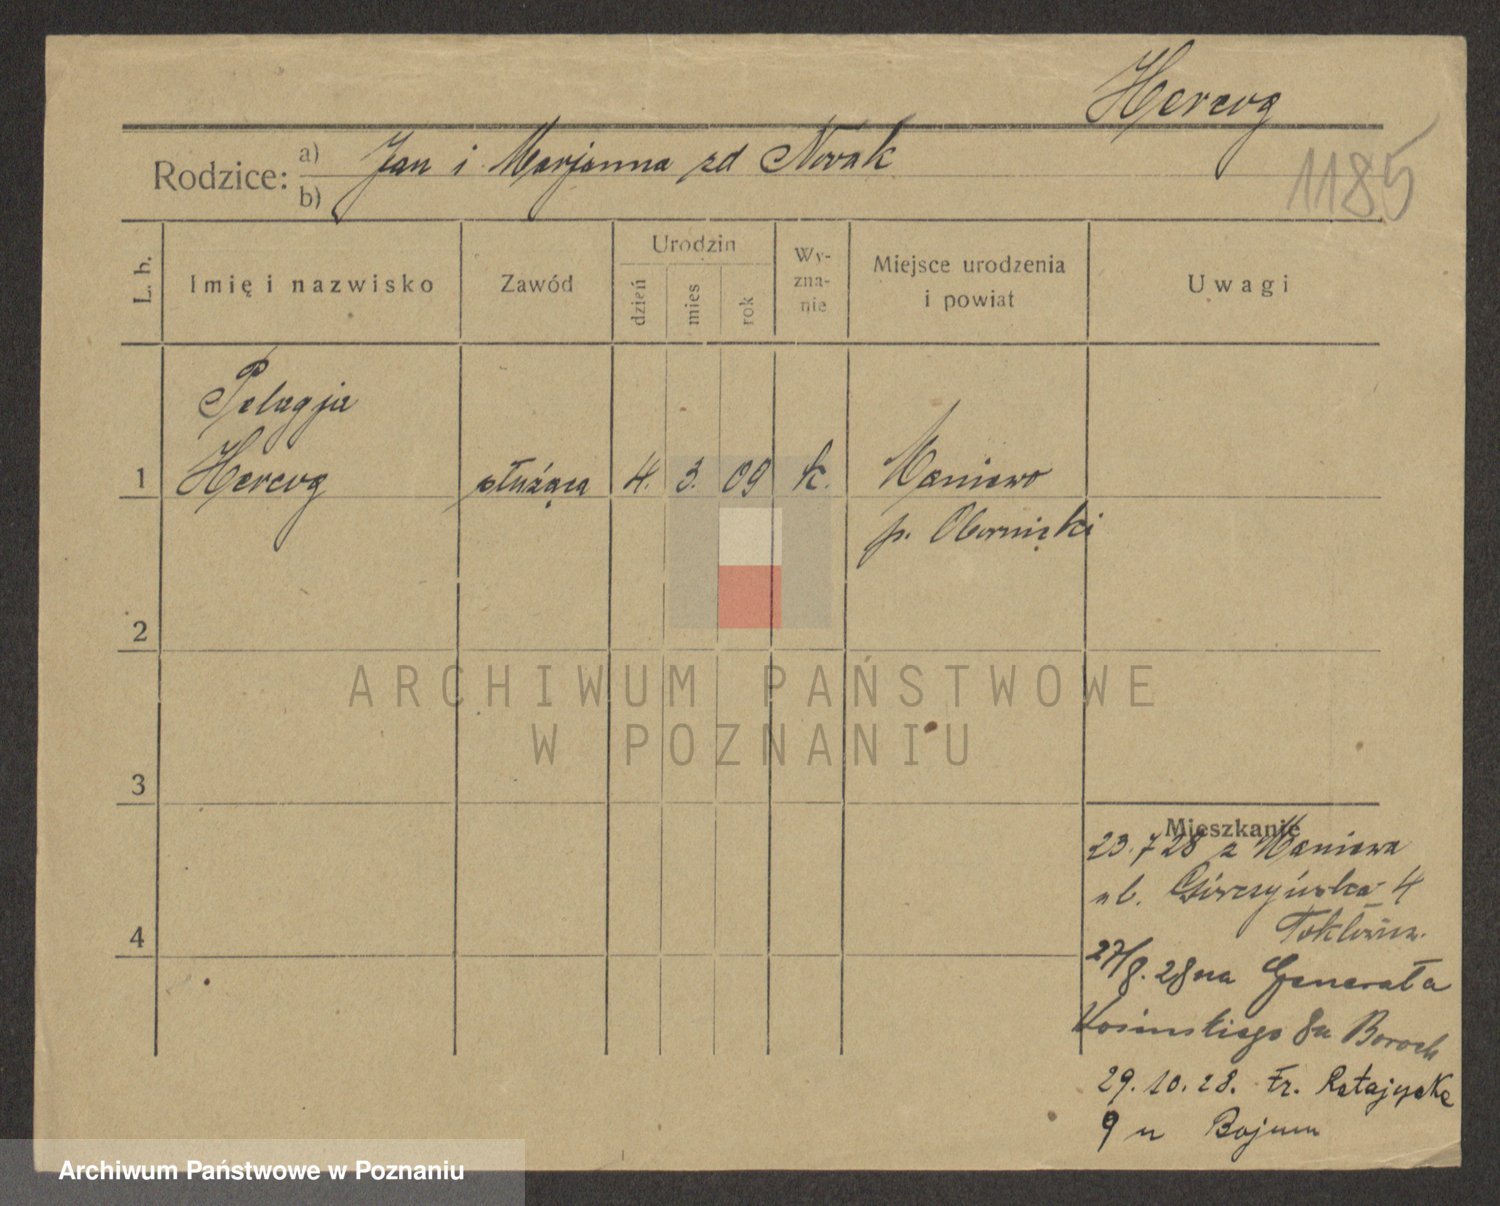 Hercog
Rodzice: a) Jan i Marjanna zd Novak
b)
1185
L. b.
Imię i nazwisko
Zawód
Urodzin
dzień
mies
rok
Wy-
zna-
nie
Miejsce urodzenia
i powiat
Uwagi
Pelagja
1 Hercog służąca 4. 3. 09 k. Maniewo
p. Obornicki
2
3
4
Mieszkanie
23.7 28 z Maniewa
ul. Górczyńska 4
27/8. 28 na Generała
Kosinskiego 8 u Boroch
29.10.28. Fr. Ratajczaka
9 u
ARCHIWUM PAŃSTWOWE
W POZNANIU
Archiwum Państwowe w Poznaniu